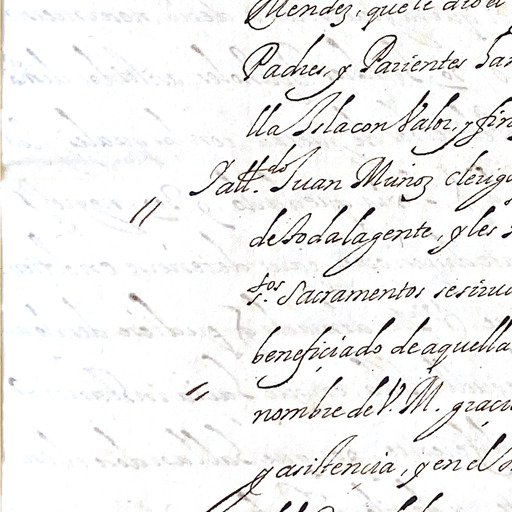 Mendez, que le dio el
Padres, y Parientes
lla Isla con Valor, y fin
Juan Muñoz clerigo
de toda la gente, y les
s.tos Sacramentos se sirvi
beneficiado de aquella
nombre de V. M. graci
y asistencia, y en el